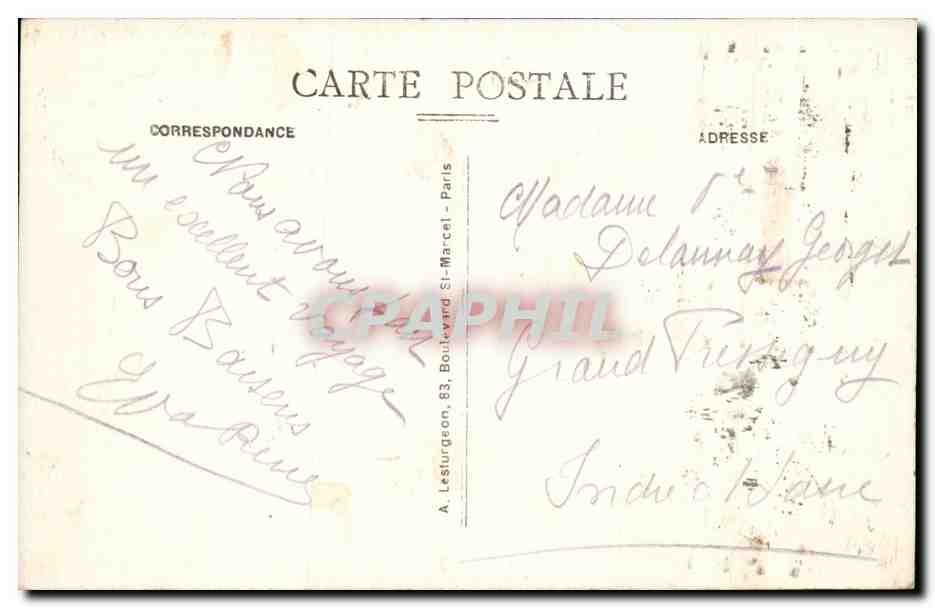 CARTE POSTALE
CORRESPONDANCE
Nous avons fait
un excellent voyage
Bons Baisers
Eva René
A. Lesturgeon, 83, Boulevard St-Marcel - Paris
ADRESSE
Madame
Delaunay Georges
Grand Pressigny
Indre & Loire
CPAPHIL